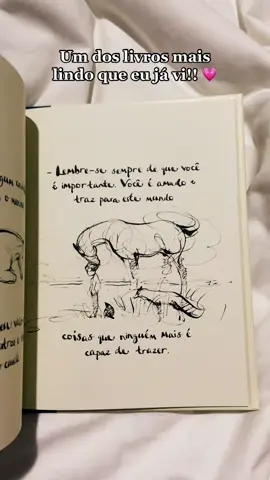 Um dos livros mais
lindo que eu já vi!! 💗
- Lembre-se sempre de que você
é importante. Você é amado e
traz para este mundo
coisas que ninguém mais é
capaz de trazer.